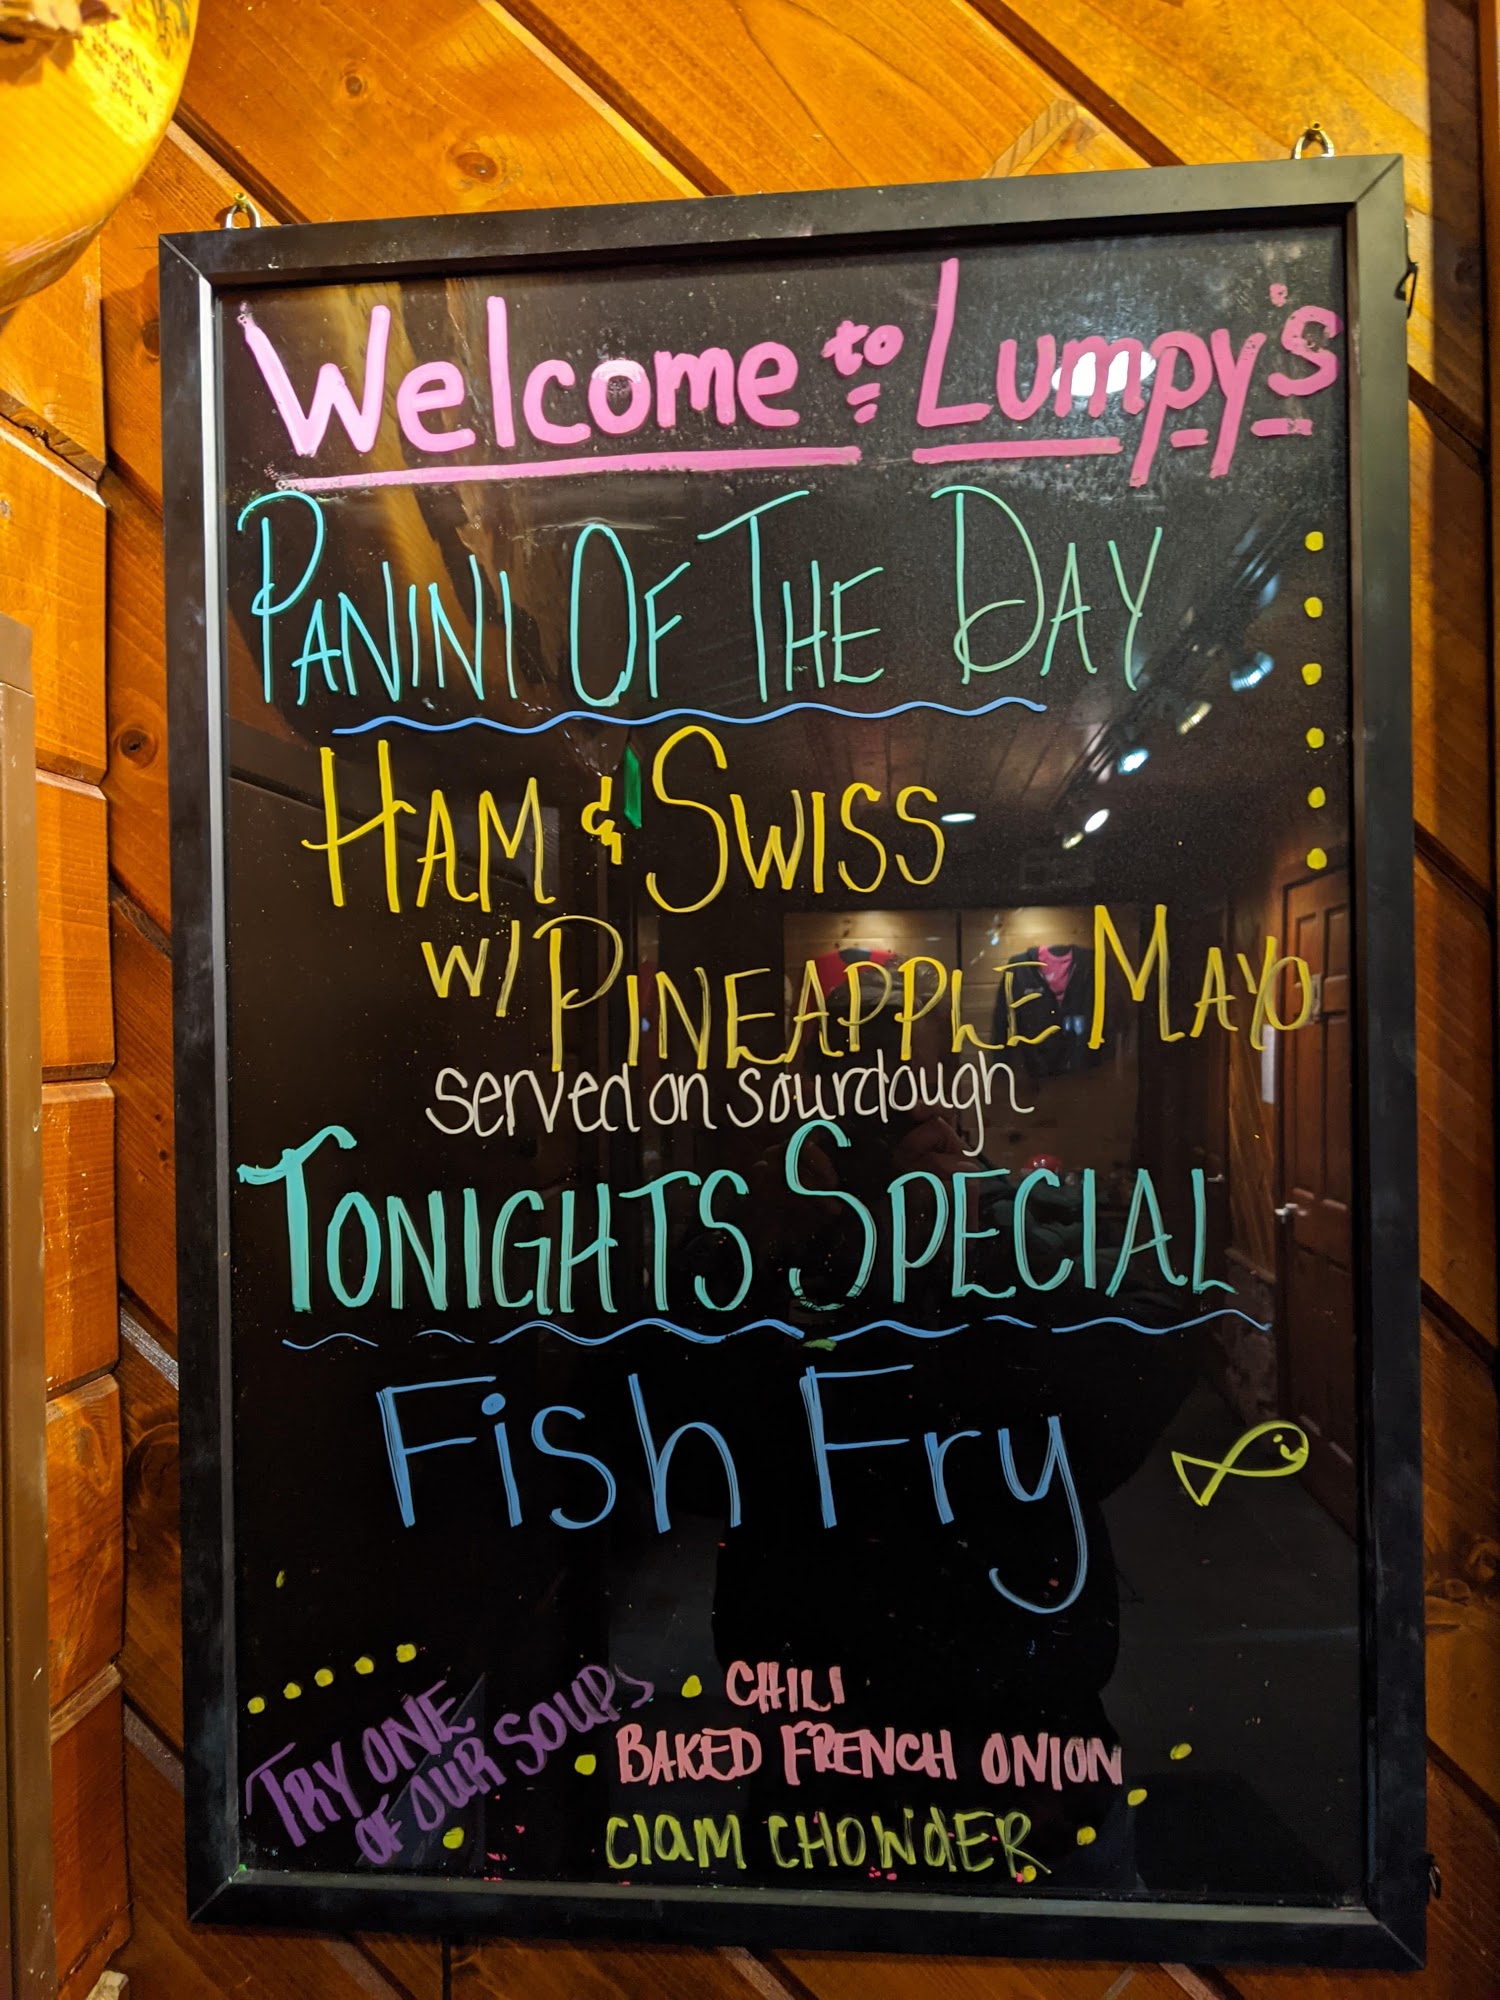 Welcome to Lumpy's
PANINI OF THE DAY
HAM & SWISS
W/ PINEAPPLE MAYO
served on sourdough
TONIGHTS SPECIAL
Fish Fry
TRY ONE
OF OUR SOUPS
CHILI
BAKED FRENCH ONION
ClAM CHOWdER